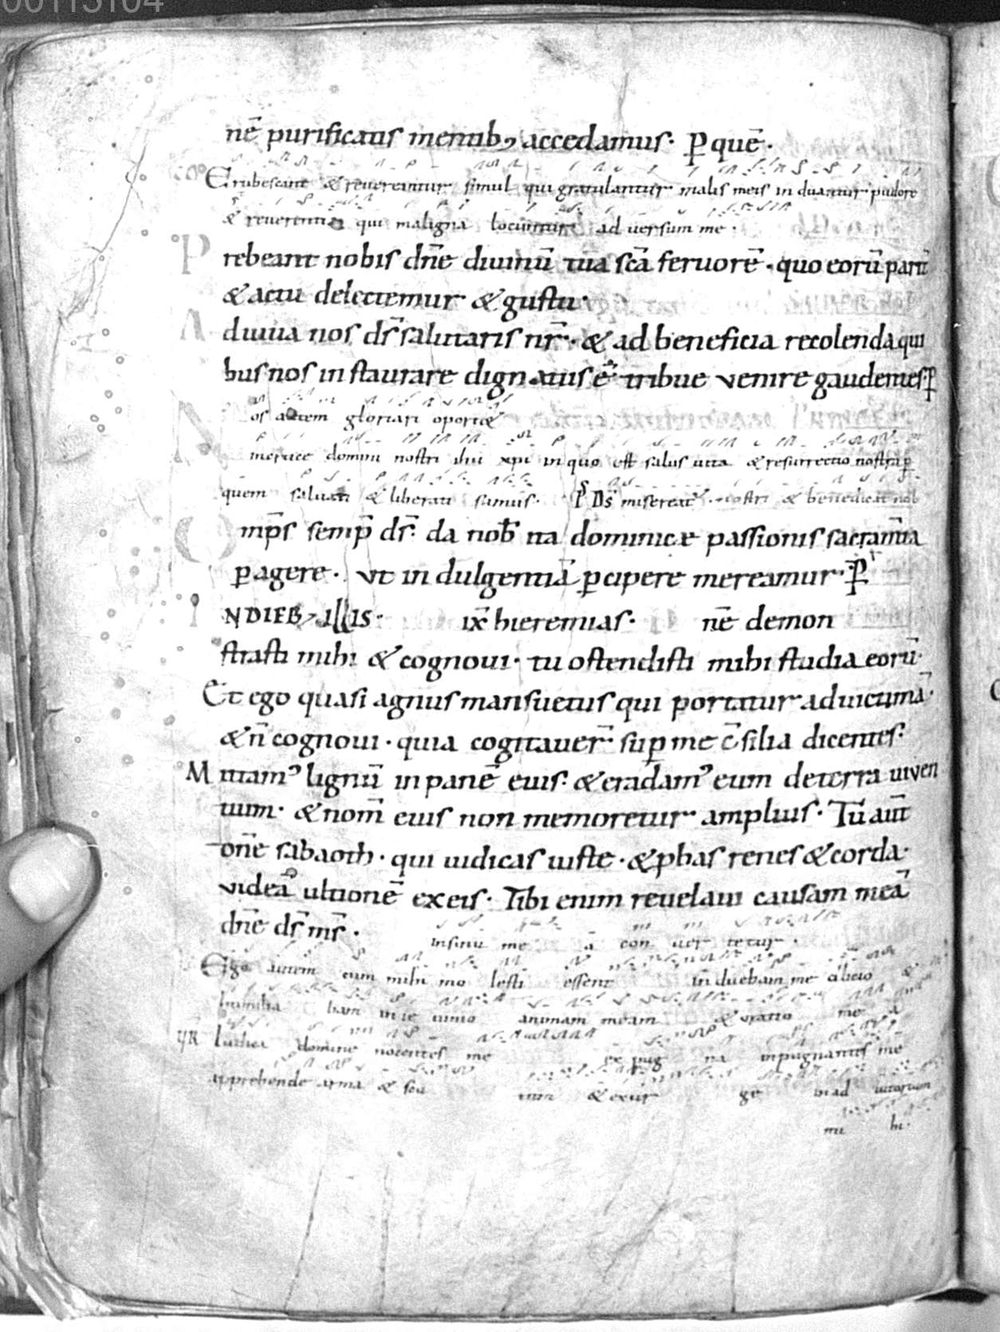 00115104
nē purificatis mentibꝰ accedamus. P quē.
Co Erubescant & revereantur simul qui gratulantur malis meis induantur pudore
& reverentia qui maligna locuntur adversum me.
Prebeant nobis dnē divinū tūa scā fervorē. quo eorū parit̄
& actu delectemur & gustu.
Adiuva nos ds̄ salutaris nr̄. & ad beneficia recolenda qui
bus nos instaurare dignatus ē tribue venire gaudentes. P
Nos autem gloriari oport&
in cruce domini nostri ihu xpi in quo est salus vita & resurrectio nostra p
quem salvati & liberati sumus. Ps Ds misereat nostri & benedicat nob
Omps semp̄ ds̄. da nob̄ ita dominicæ passionis sacram̄ta
pagere. Ut indulgentiā pcipere mereamur. P
IN DIEB; ILLIS. ix̄ hieremias. nē demon
strasti mihi & cognovi. tu ostendisti mihi studia eorū.
Et ego quasi agnus mansuetus qui portatur ad victimā.
& n̄ cognovi. quia cogitaver̄ sup me c̄silia dicentes.
Mittamꝰ lignū in panē eius. & eradamꝰ eum de terra viven
tium. & nom̄ eius non memoretur amplius. Tū aut̄
one sabaoth. qui iudicas iuste. & pbas renes & corda.
videā ultionē ex eis. Tibi enim revelavi causam meā
dnē ds̄ ms̄. in sinu me o con ver tetur.
Ego autem cum mihi mo lesti essent induebam me cilicio &
humilia bam in ie iunio animam meam & oratio mea
VR Iudica domine nocentes me ex pug na inpugnantes me
apprehende arma & scu tum & exur ge in ad iutorium
mi hi.